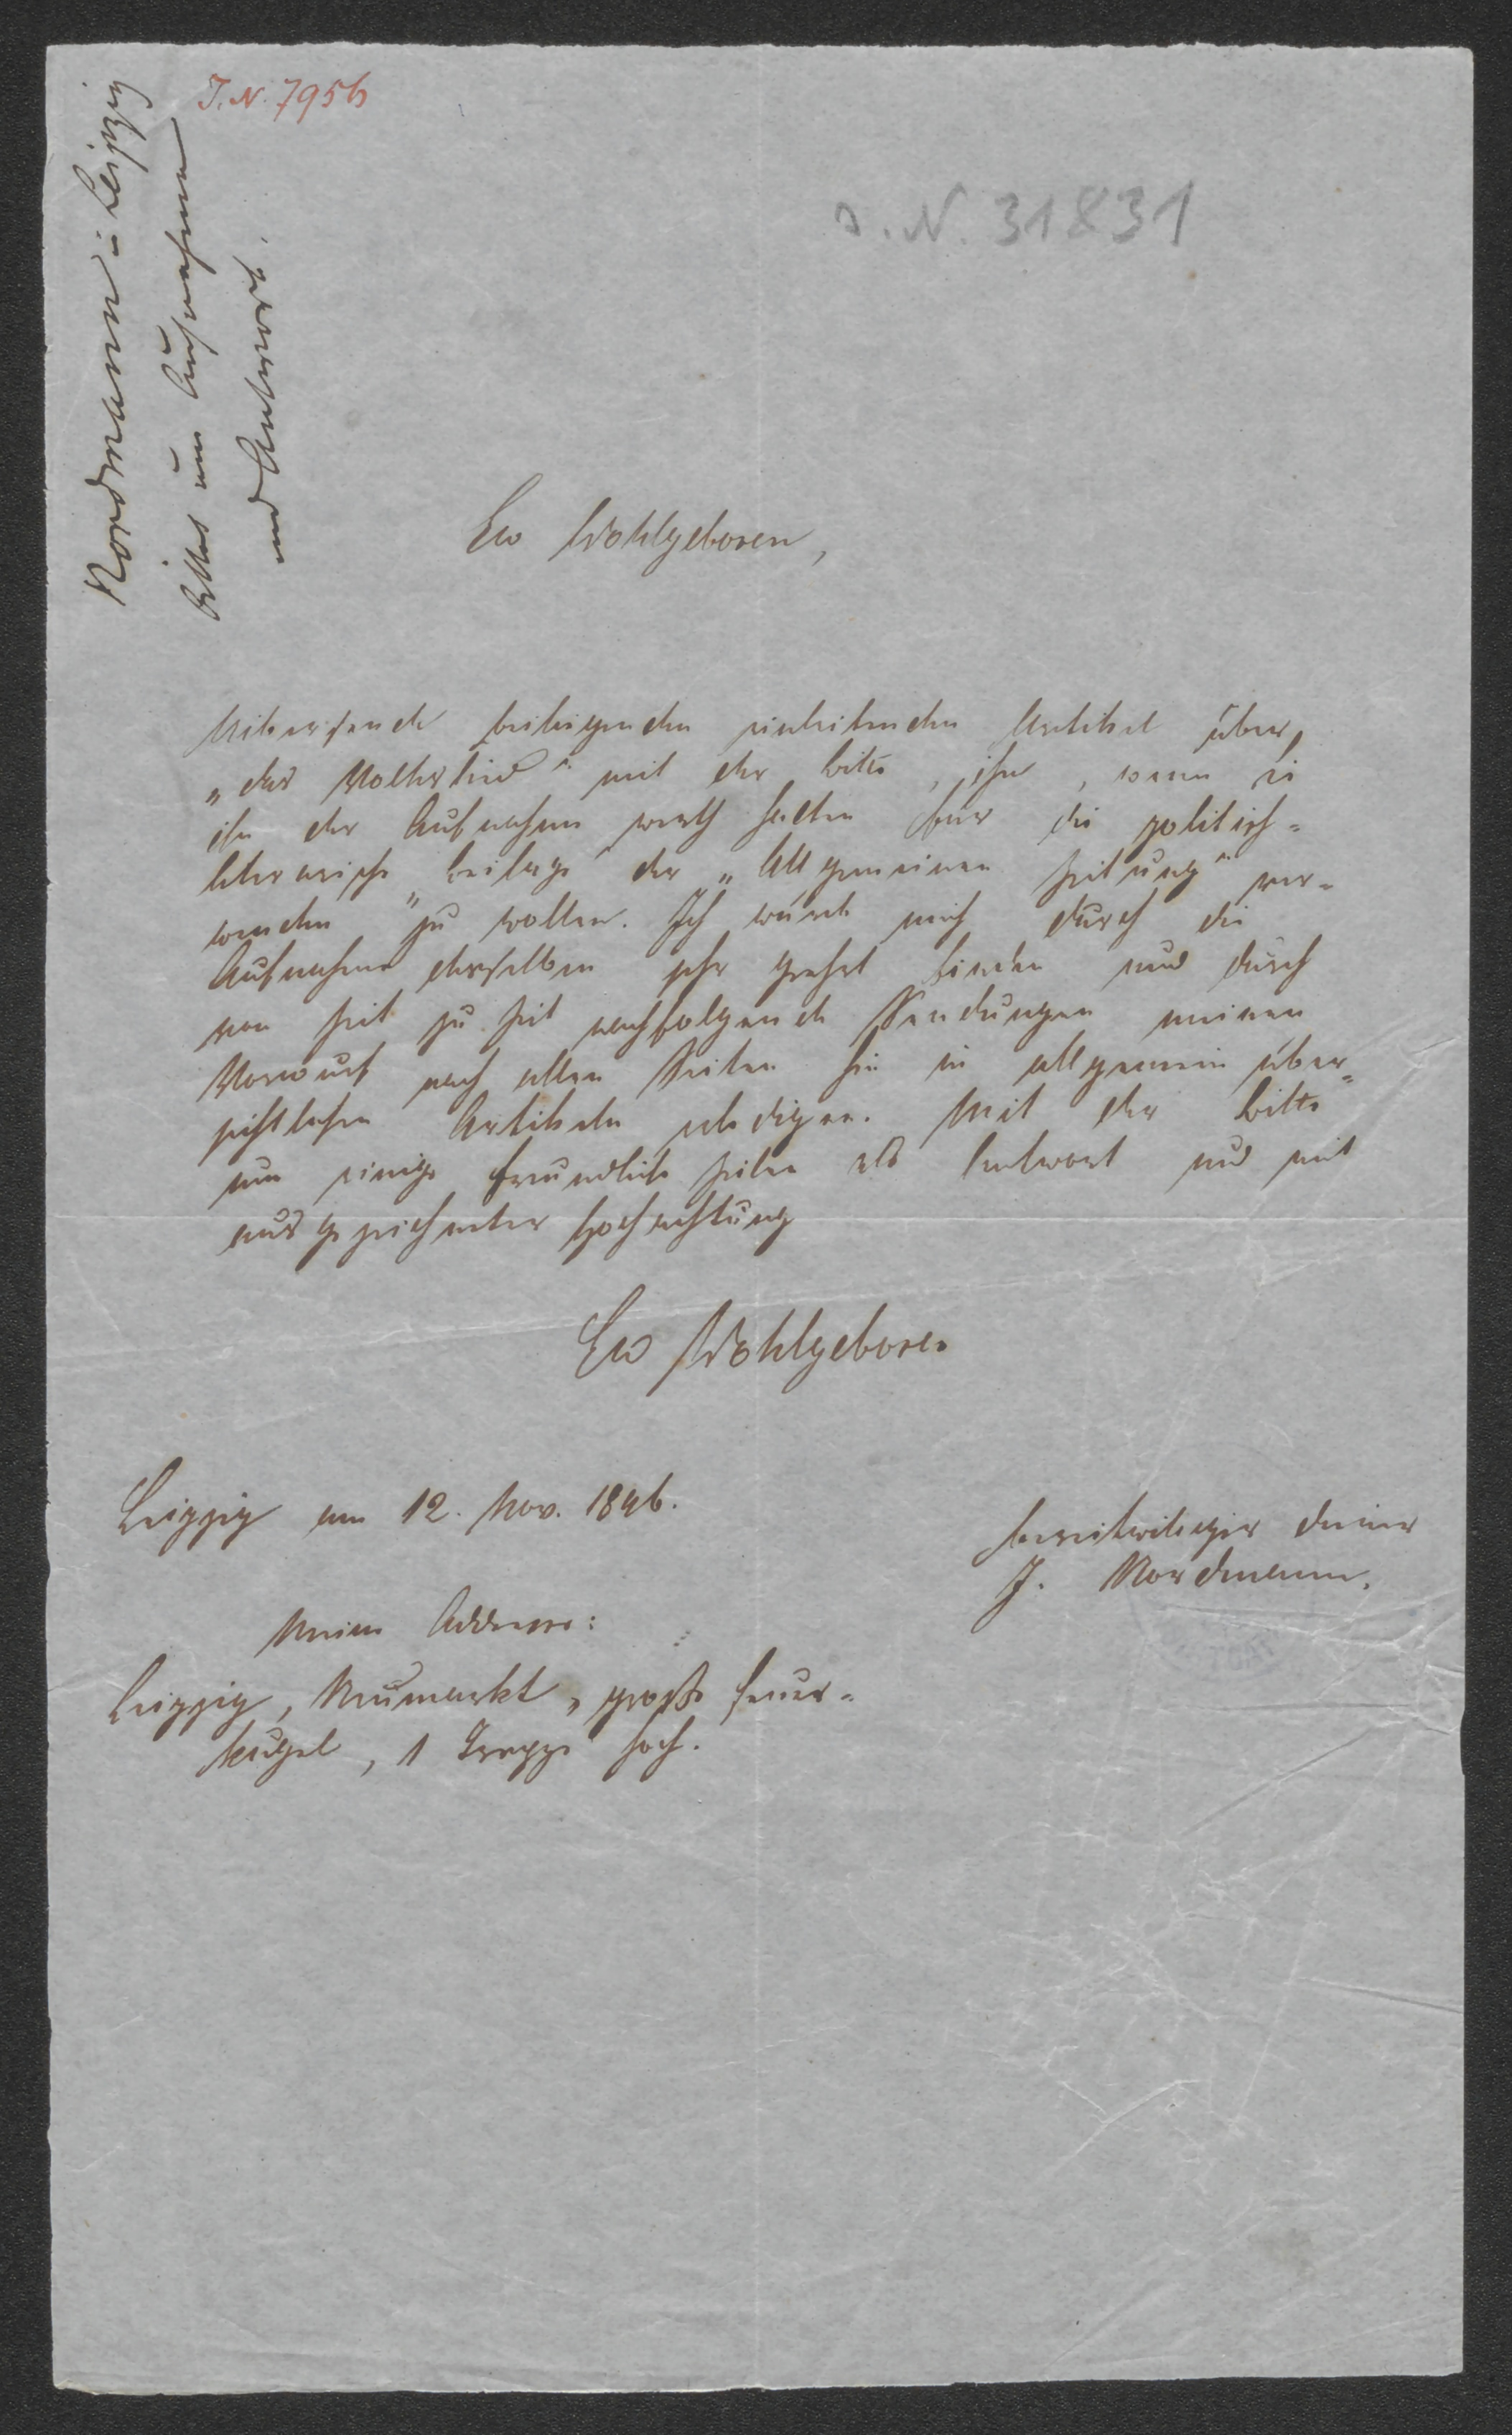 J. N. 7956
J. N. 31831
Nordmann in Leipzig
bittet um Aufnahme
und Antwort.
Ew Wohlgeboren,
beiliegenden einleitenden Artikel über
„das Volkslied“ mit der Bitte, ihn, wenn Sie
ihn der Aufnahme werth halten für die politisch-
literarische „Beilage der „Allgemeinen Zeitung“ ver-
wenden zu wollen. Ich würde mich durch die
Aufnahme desselben sehr geehrt finden und durch
von Zeit zu Zeit nachfolgende Sendungen meinen
Vorwurf nach allen Seiten hin in allgemein über-
sichtlichen Artikeln erledigen. Mit der Bitte
um einige freundliche Zeilen als Antwort und mit
ausgezeichneter Hochachtung
Ew Wohlgeboren
Leipzig am 12. Nov. 1846.
bereitwilliger Diener
J. Nordmann.
Meine Addresse:
Leipzig, Neumarkt, große Feuer-
kugel, 1 Treppe hoch.